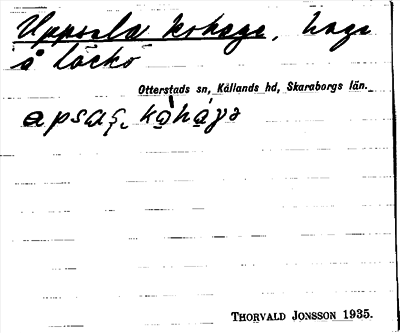 Uppsala kohage, hage
å läckö
Otterstads sn, Kållands hd, Skaraborgs län.
THORVALD JONSSON 1935.